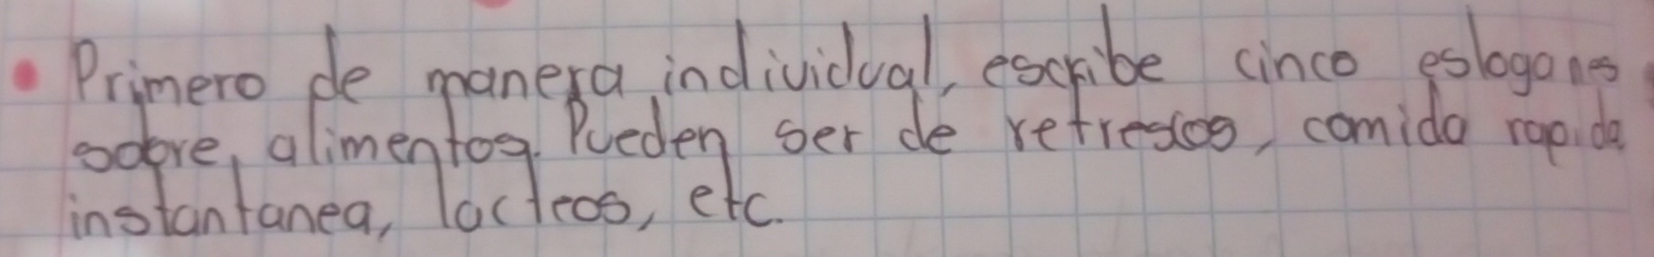 • Primero de manera individual, escribe cinco eslogones
sobre, alimentos. Pueden ser de refrescos, comida rapida
instantanea, lacteos, etc.